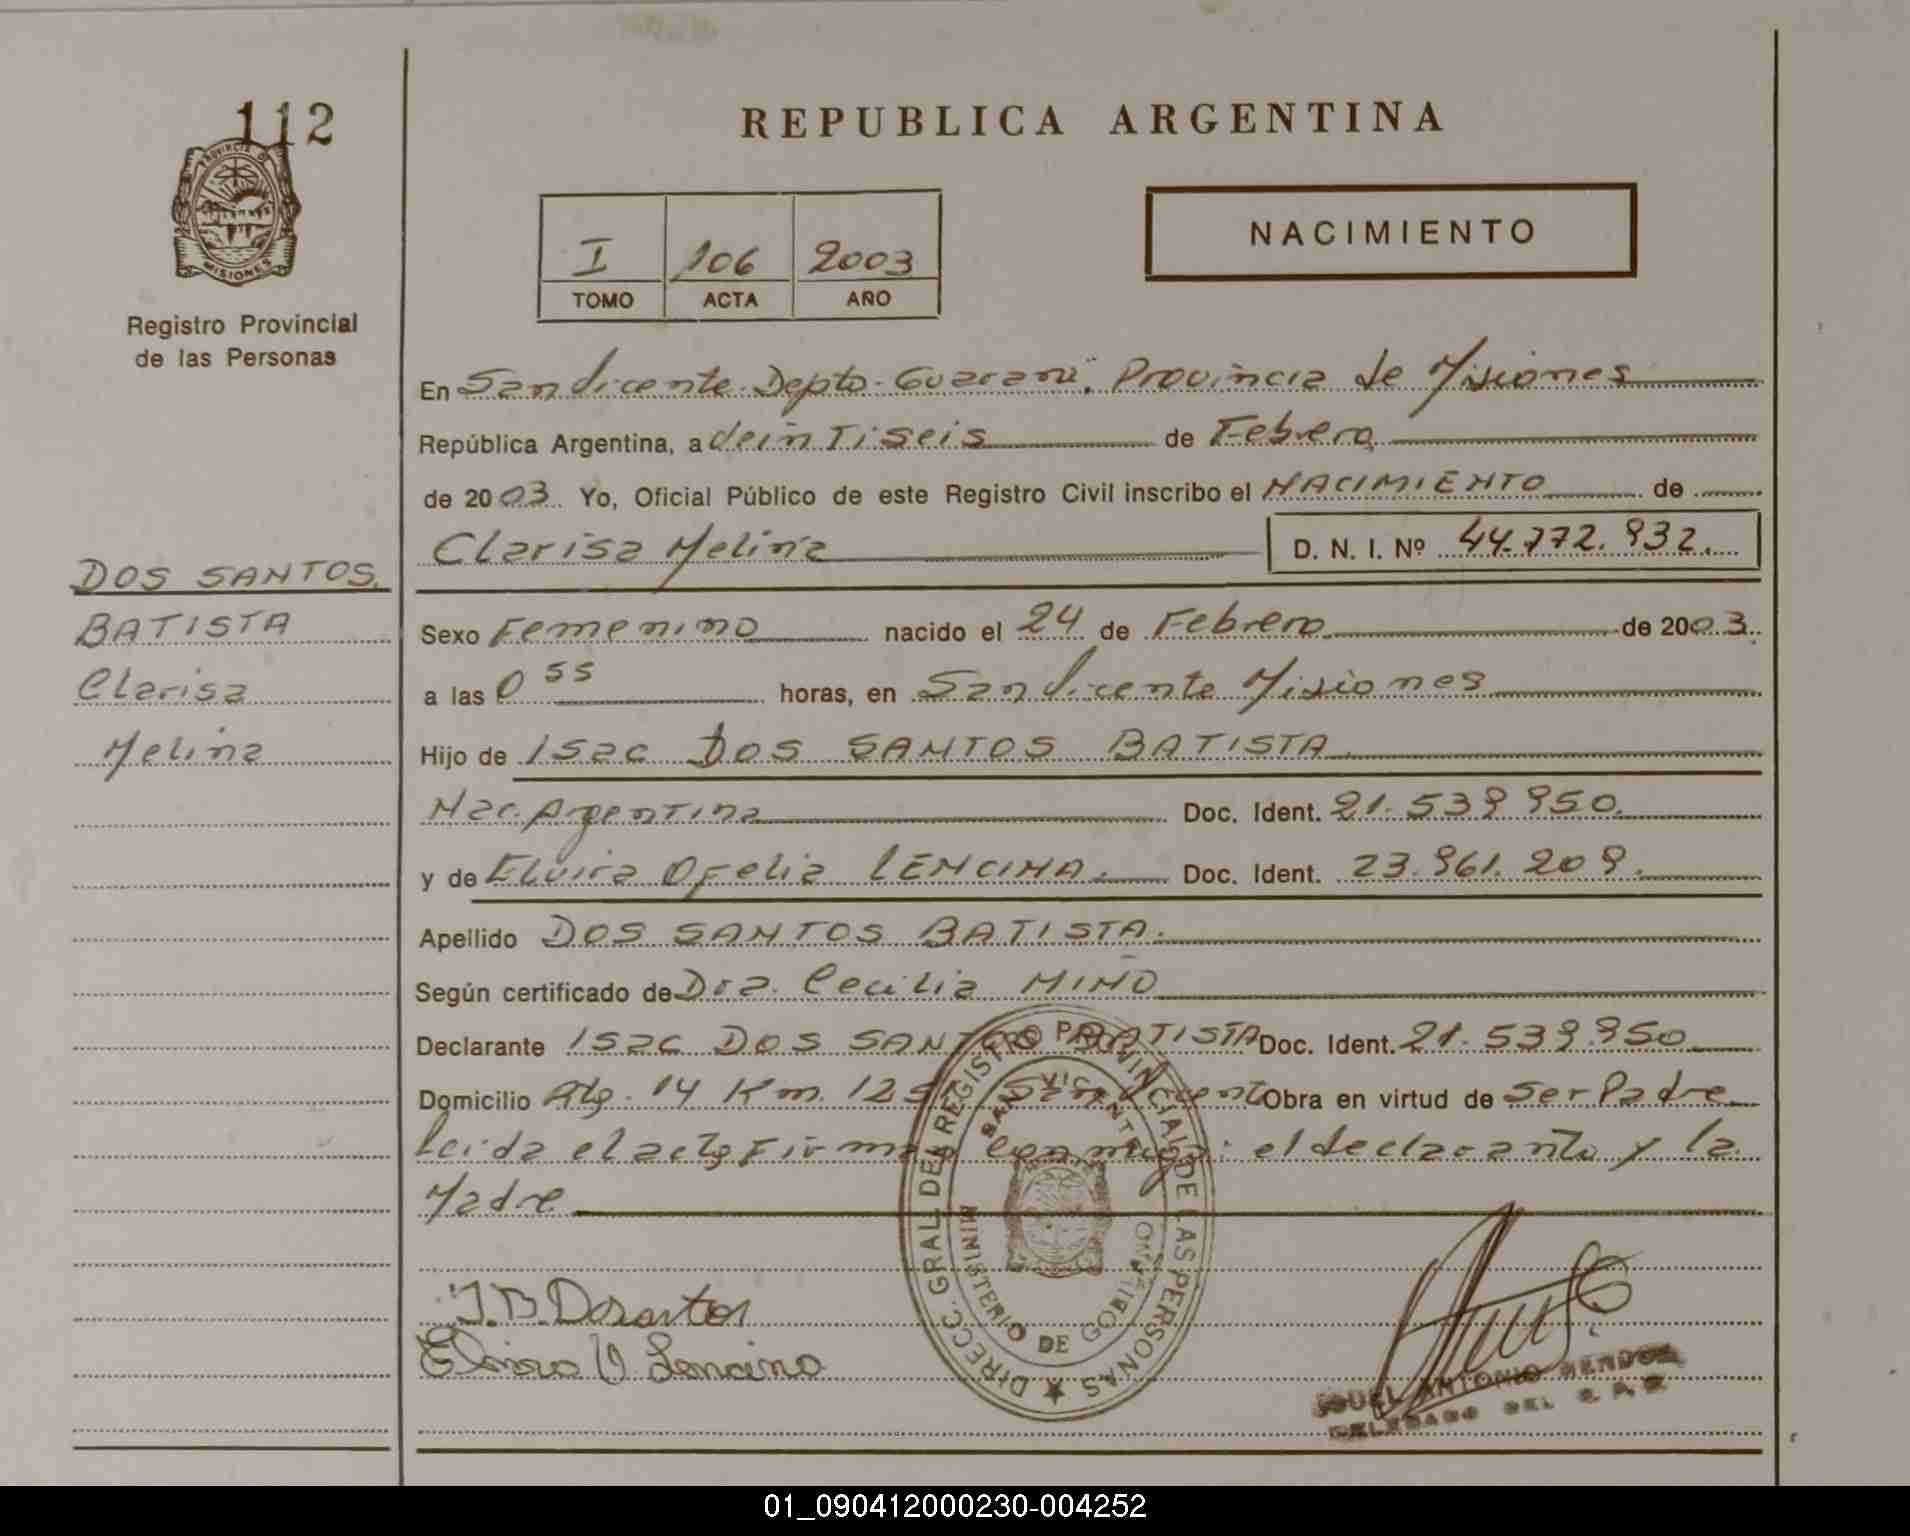 112
PROVINCIA DE
MISIONES
Registro Provincial
de las Personas
DOS SANTOS
BATISTA
Clarisa
Melina
REPUBLICA ARGENTINA
I 106 2003
TOMO ACTA AÑO
NACIMIENTO
En San Vicente Depto. Guaraní, Provincia de Misiones
República Argentina, a veintiseis de Febrero
de 2003 Yo, Oficial Público de este Registro Civil inscribo el NACIMIENTO de
Clarisa Melina D. N. I. Nº 44.772.932.
Sexo Femenino nacido el 24 de Febrero de 2003.
a las 0 55 horas, en San Vicente Misiones
Hijo de Isac DOS SANTOS BATISTA.
Nac. Argentina Doc. Ident. 21.539.950.
y de Elvira Ofelia LENCINA. Doc. Ident. 23.961.209.
Apellido DOS SANTOS BATISTA.
Según certificado de Dra. Cecilia MIÑO
Declarante Isac DOS SANTOS BATISTA Doc. Ident. 21.539.950
Domicilio Km. 125 San Vicente Obra en virtud de Ser Padre
Leida el acta Firman conmigo: el declarante y la
Madre
DIRECC. GRAL. DEL REGISTRO PROVINCIAL DE LAS PERSONAS
SAN VICENTE
MINISTERIO DE GOBIERNO
ANTONIO MENDOZA
DELEGADO DEL
01_090412000230-004252